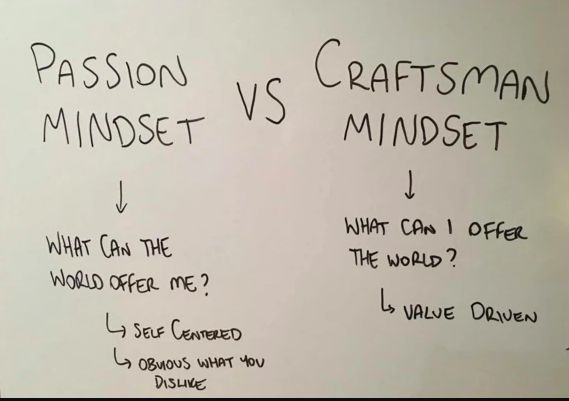 PASSION
MINDSET
VS
CRAFTSMAN
MINDSET
WHAT CAN THE
WORLD OFFER ME?
SELF CENTERED
OBVIOUS WHAT YOU
DISLIKE
WHAT CAN I OFFER
THE WORLD?
VALUE DRIVEN